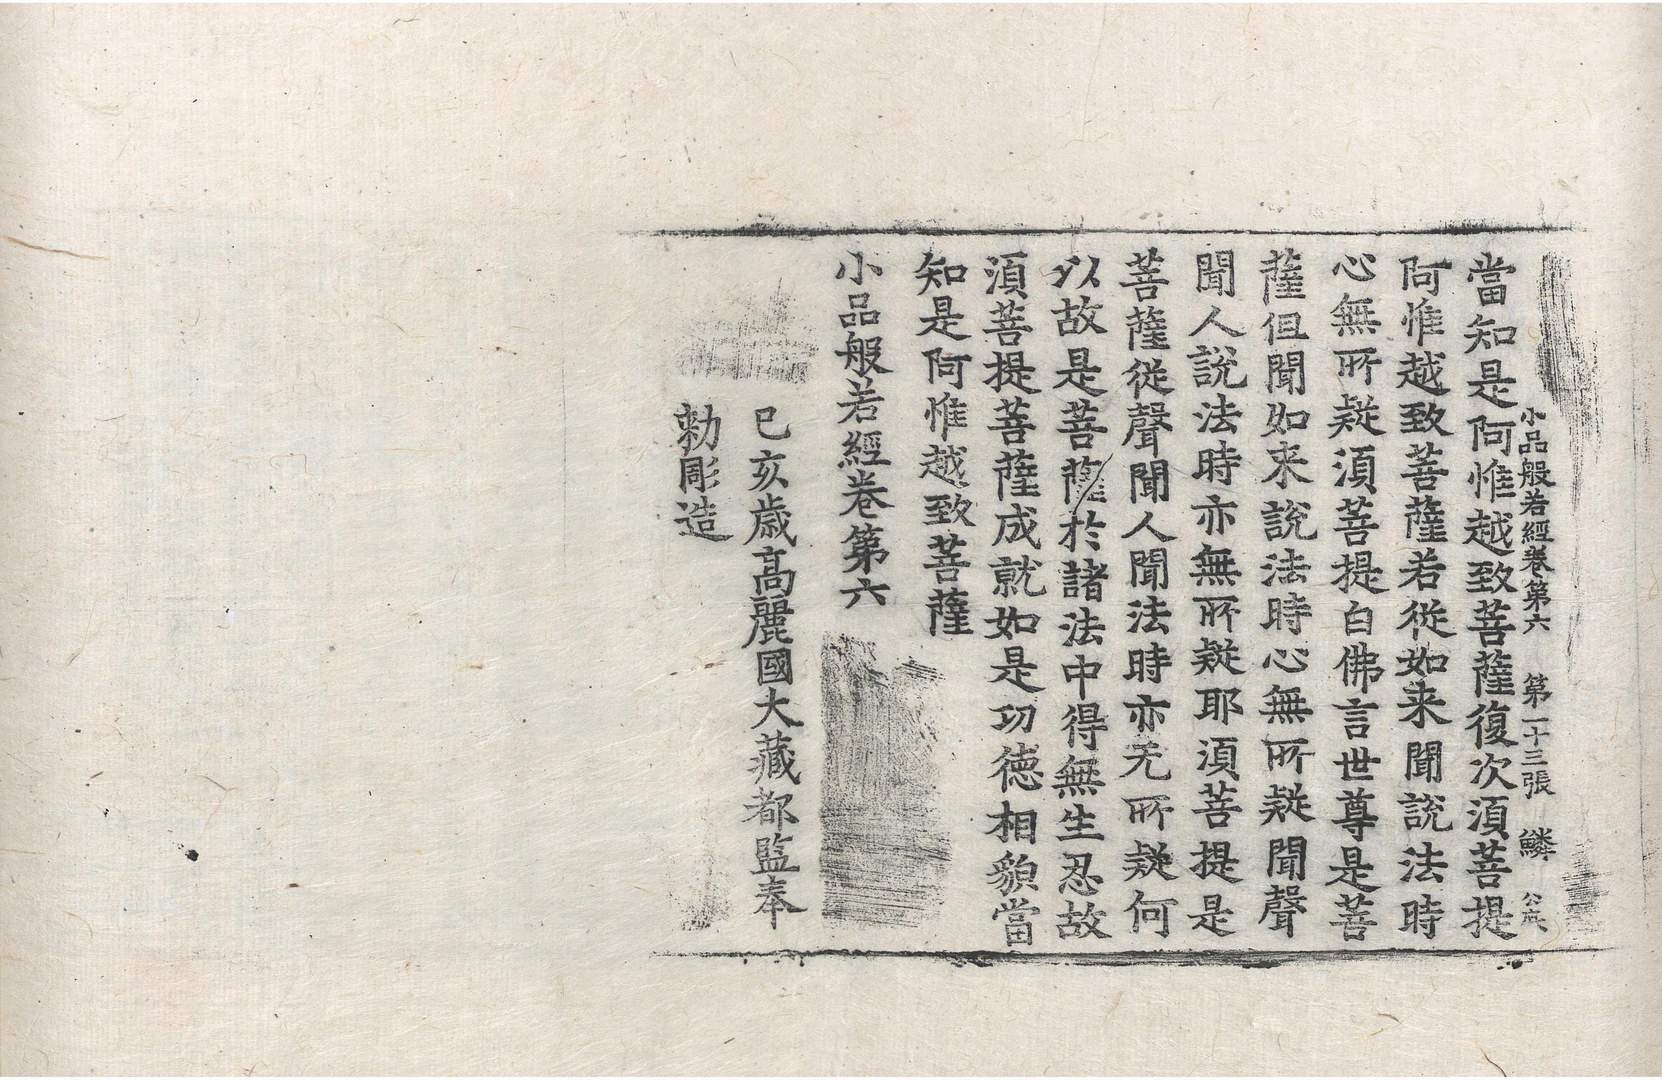 小品般若經卷第六　第二十三張　鱗
當知是阿惟越致菩薩復次湏菩提
阿惟越致菩薩若從如来聞說法時
心無所疑湏菩提白佛言世尊是菩
薩但聞如来說法時心無所疑聞聲
聞人說法時亦無所疑耶湏菩提是
菩薩從聲聞人聞法時亦无所疑何
以故是菩薩於諸法中得無生忍故
湏菩提菩薩成就如是功德相貌當
知是阿惟越致菩薩
小品般若經卷第六
己亥歲高麗國大藏都監奉
勑彫造